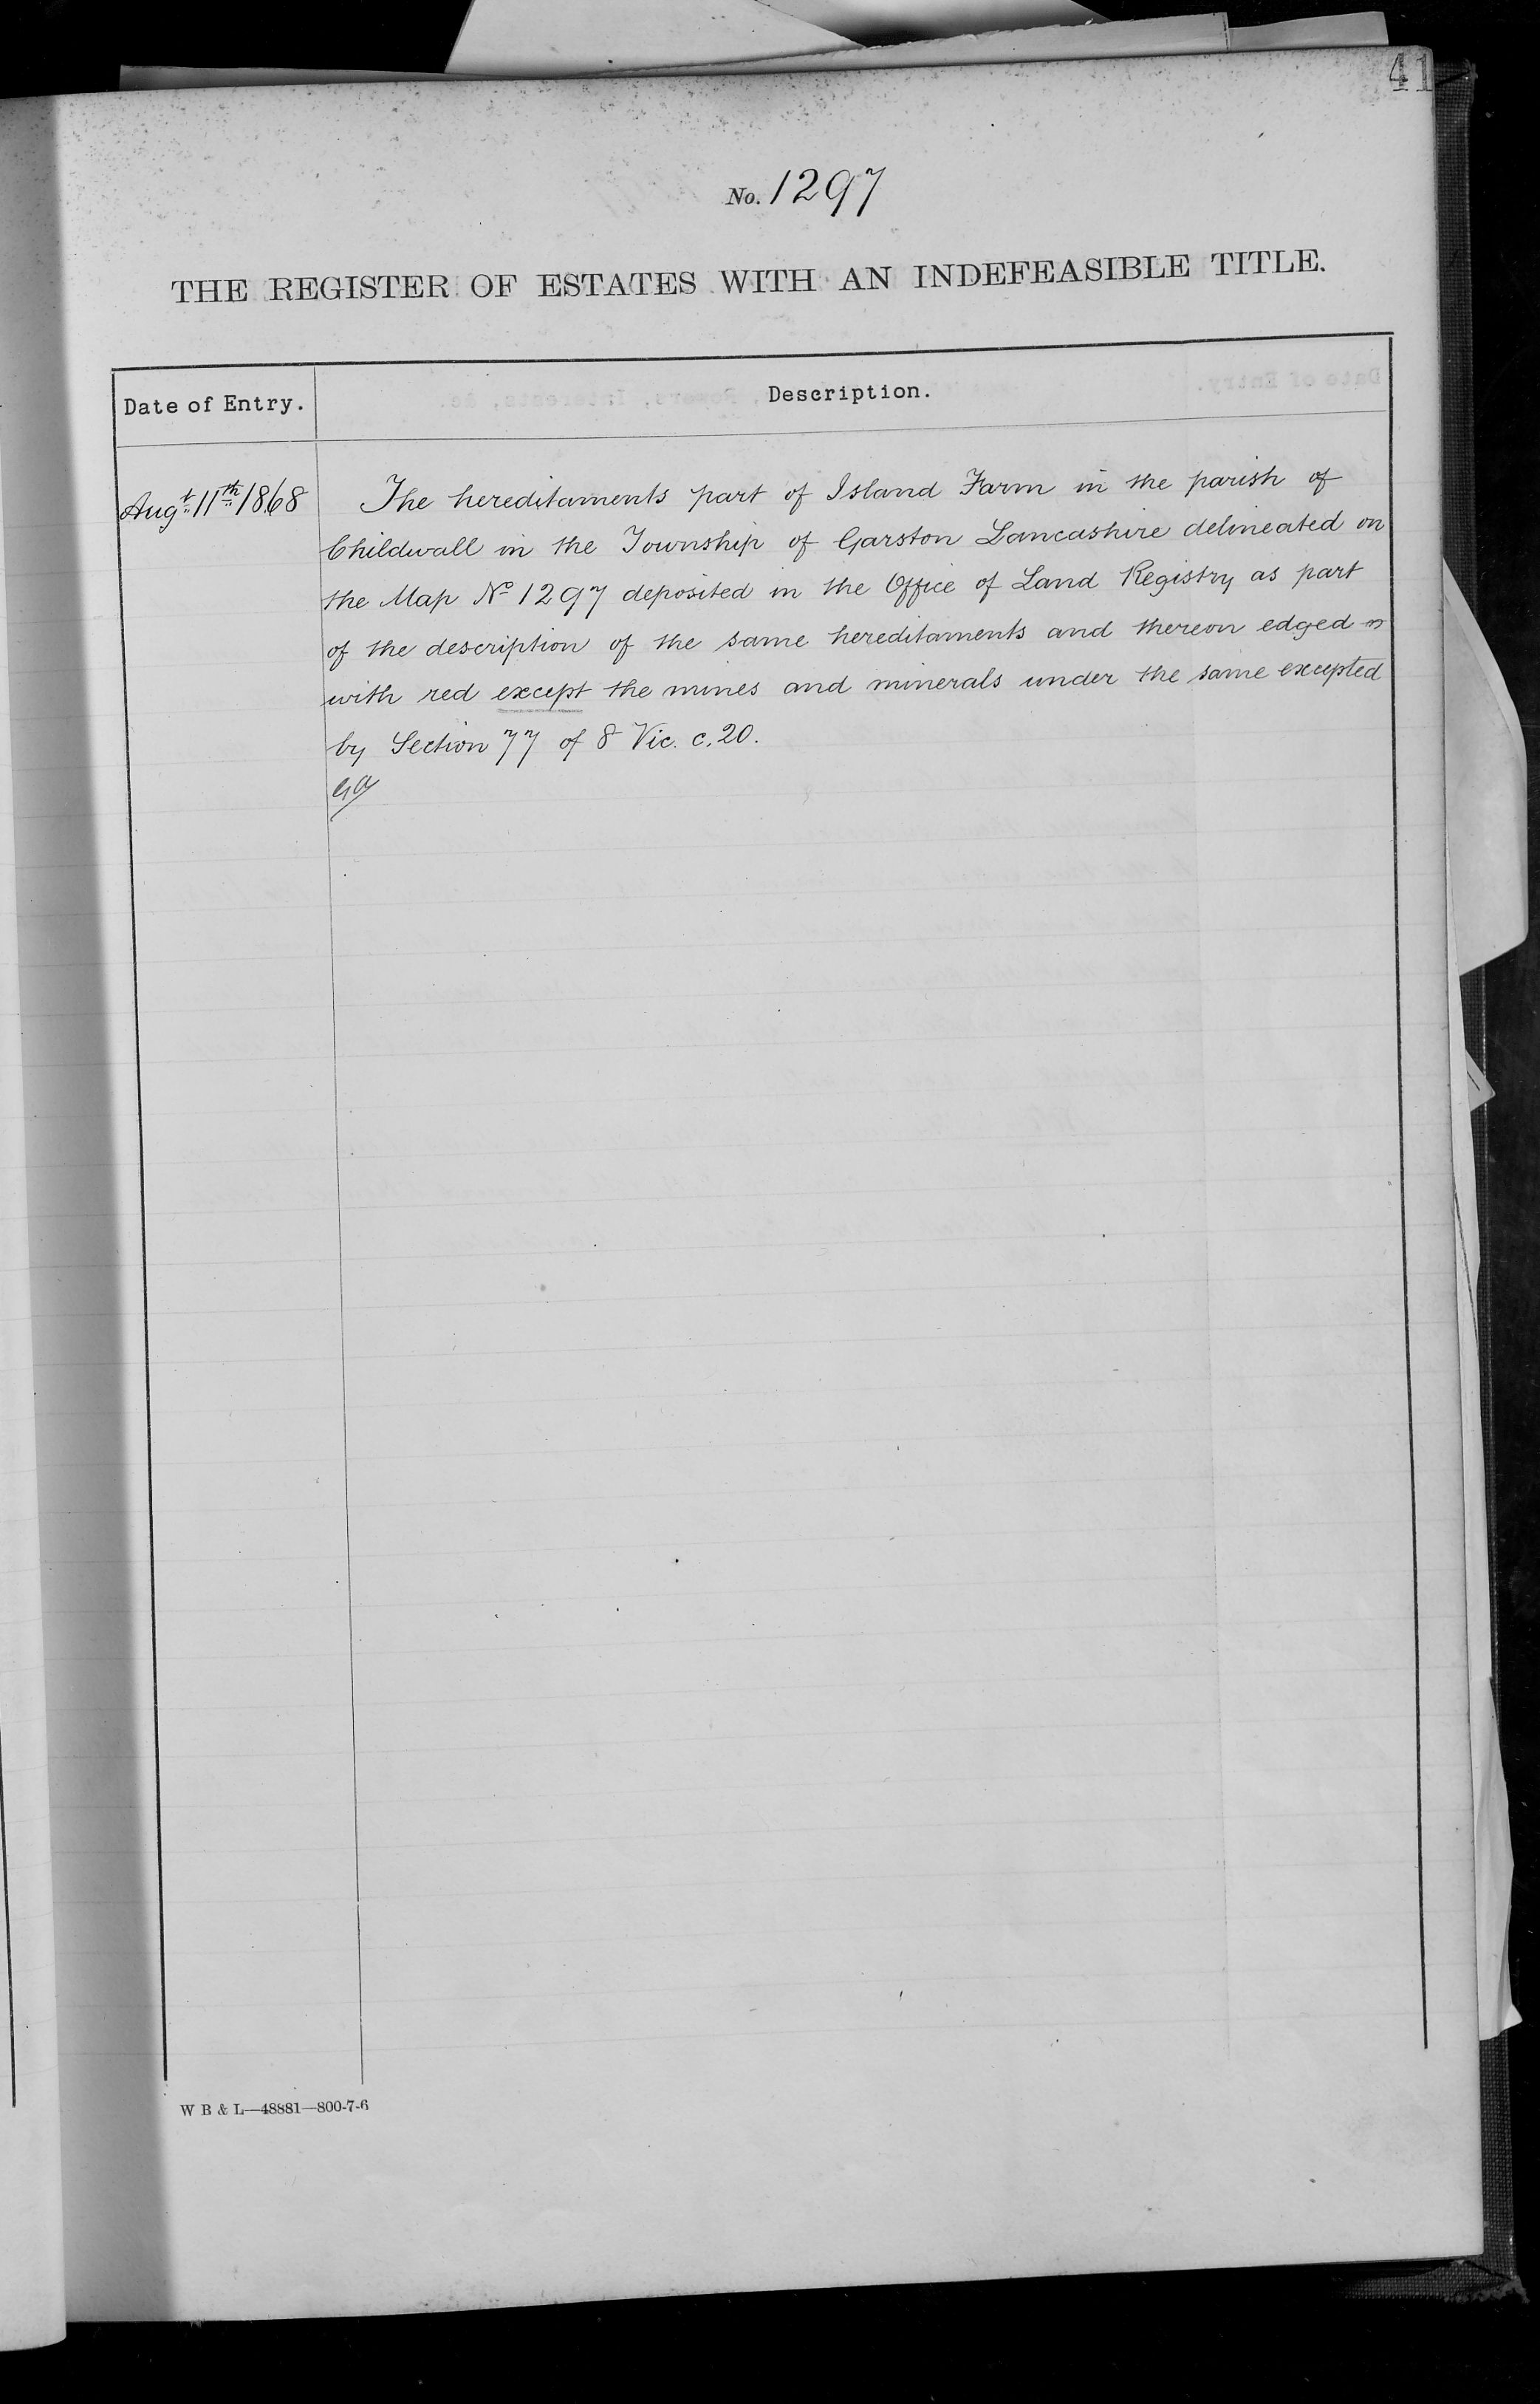 41
No. 1297
THE REGISTER OF ESTATES WITH AN INDEFEASIBLE TITLE.
Date of Entry.
Description.
Augt. 11th. 1868
The hereditaments part of Island Farm in the parish of
Childwall in the Township of Garston Lancashire delineated on
the Map No 1297 deposited in the Office of Land Registry as part
of the description of the same hereditaments and thereon edged
with red except the mines and minerals under the same excepted
by Section 77 of 8 Vic. c. 20.
W B & L—48881—800-7-6